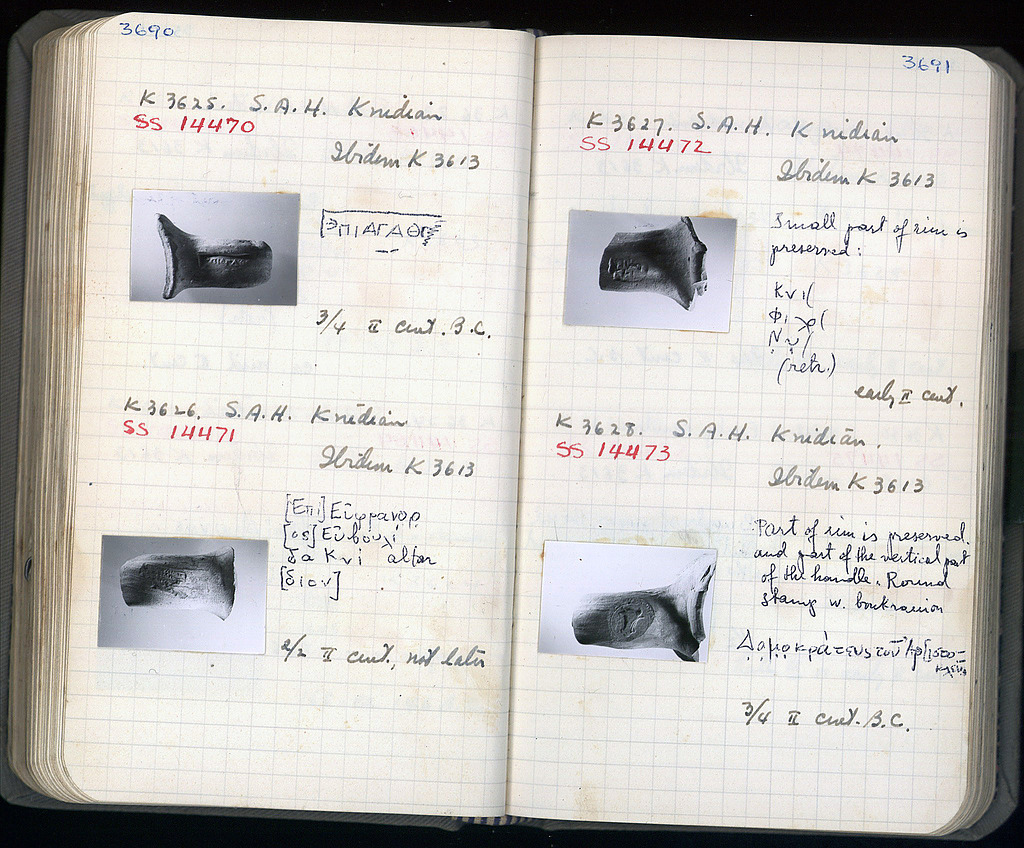 3690
K 3625. S.A.H. Knidian
SS 14470
Ibidem K 3613
ΕΠΙΑΓΑΘ
3/4 II cent. B.C.
K 3626. S.A.H. Knidian
SS 14471
Ibidem K 3613
[Επι] Εὐφρανορ
[ος] Εὐβουλί
δα Κνί altar
[διον]
2/2 II cent., not later
3691
K 3627. S.A.H. Knidian
SS 14472
Ibidem K 3613
Small part of rim is
preserved:
Κνι(
Φι
(retr.)
early II cent.
K 3628. S.A.H. Knidian.
SS 14473
Ibidem K 3613
Part of rim is preserved.
and part of the vertical part
of the handle. Round
stamp w. boukranion
Δαμοκράτευς τοῦ Ἀρ[ιστο-
κλεῦς
3/4 II cent. B.C.